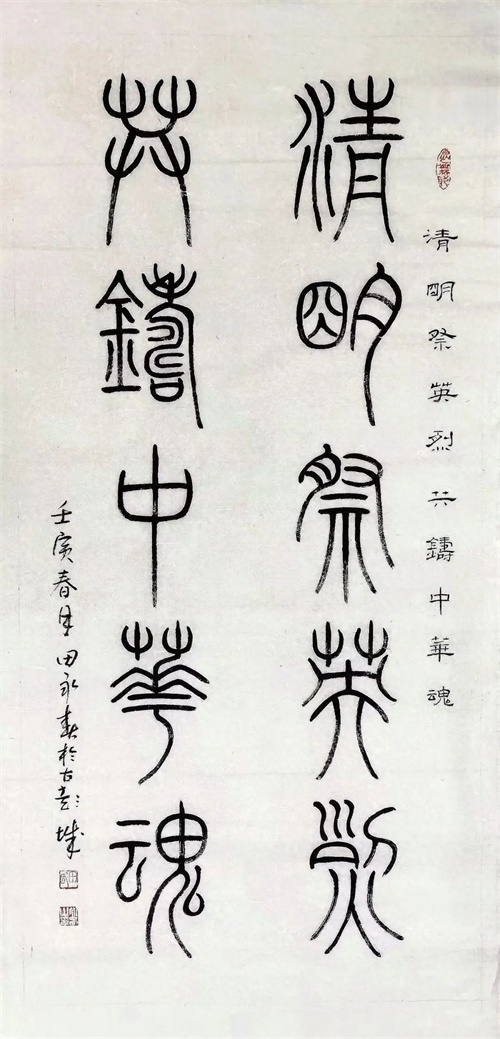 清明祭英烈共鑄中華魂
清明祭英烈
共鑄中華魂
壬寅春月田永於古彭城